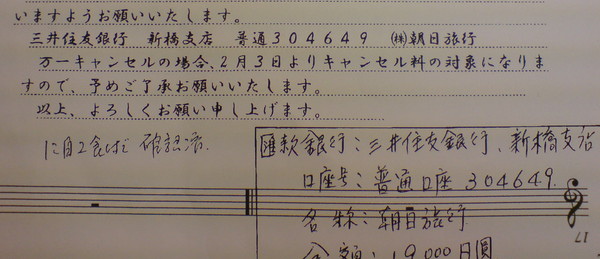 いますようお願いいたします。
三井住友銀行 新橋支店 普通304649 ㈱朝日旅行
万一キャンセルの場合、2月3日よりキャンセル料の対象になりま
すので、予めご了承お願いいたします。
以上、よろしくお願い申し上げます。
確認済.
匯款銀行：三井住友銀行、新橋支店
口座号：普通口座 304649.
名称：朝日旅行
金額：19,000日圓
17